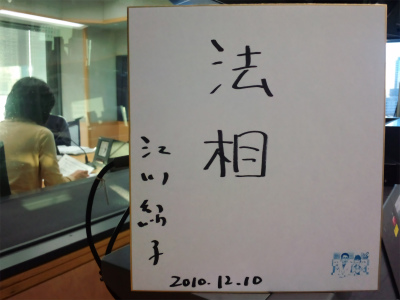 法相
江川紹子
2010.12.10